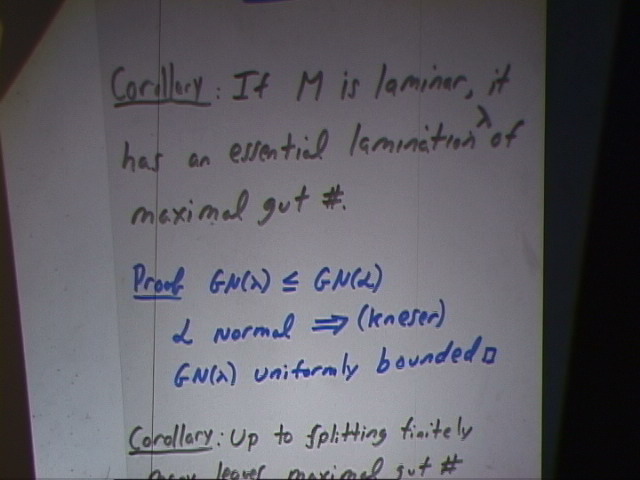 Corollary: If M is laminar, it
has an essential lamination λ of
maximal gut #.
Proof GN(λ) ≤ GN(𝓛)
𝓛 normal ⇒ (kneser)
GN(λ) uniformly bounded □
Corollary: Up to splitting finitely
many leaves maximal gut #